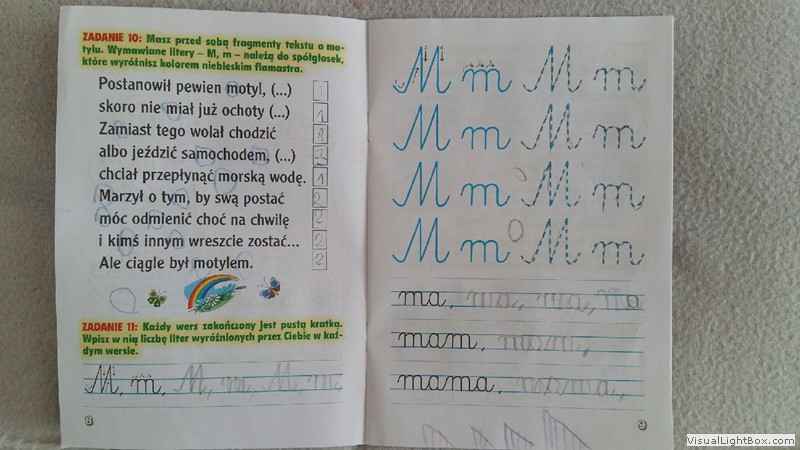 ZADANIE 10: Masz przed sobą fragmenty tekstu o mo-
tylu. Wymawiane litery – M, m – należą do spółgłosek,
które wyróżnisz kolorem niebieskim flamastra.
Postanowił pewien motyl, (...)
skoro nie miał już ochoty (...) 1
Zamiast tego wolał chodzić
albo jeździć samochodem, (...) 2
chciał przepłynąć morską wodę. 1
Marzył o tym, by swą postać 2
móc odmienić choć na chwilę 2
i kimś innym wreszcie zostać... 2
Ale ciągle był motylem. 2
ZADANIE 11: Każdy wers zakończony jest pustą kratką.
Wpisz w nią liczbę liter wyróżnionych przez Ciebie w każ-
dym wersie.
M, m, M, m, M, m
8
M m M m
M m M m
M m M m
M m M m
ma, mam,
mam, mam,
mama,
9
VisualLightBox.com